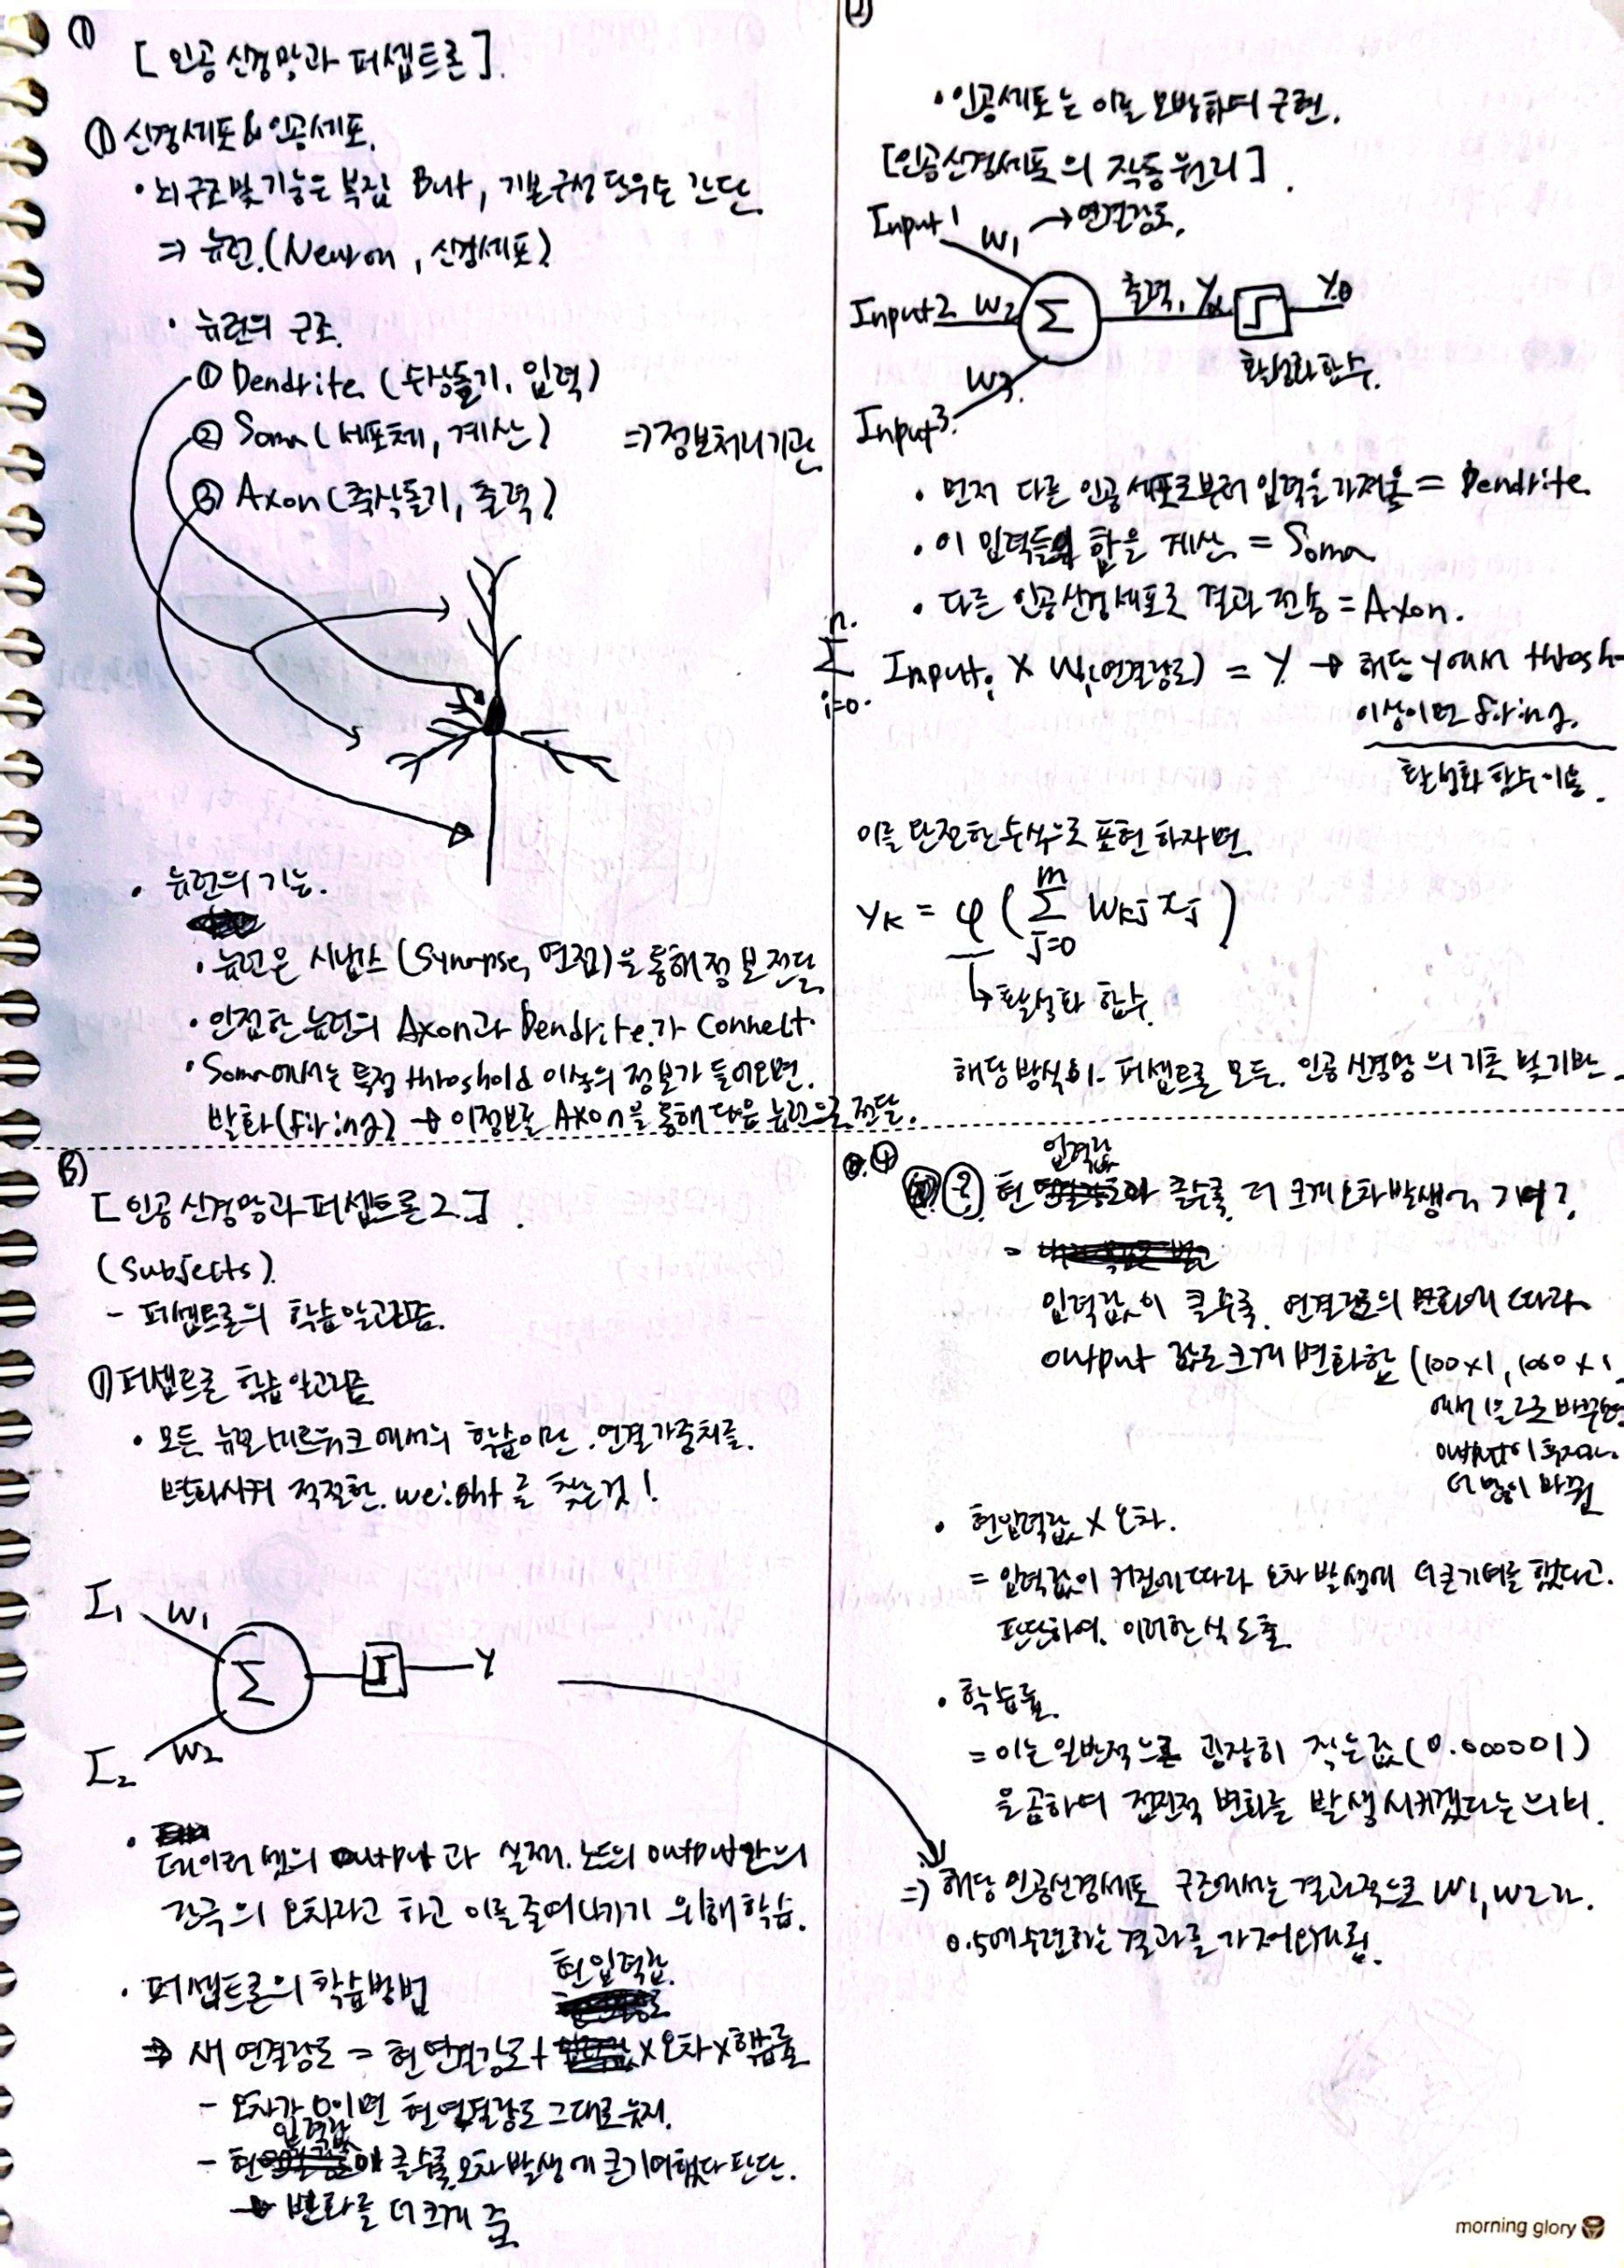 ①
[인공신경망과 퍼셉트론].
① 신경세포 & 인공세포.
• 뇌 구조 및 기능은 복잡 But, 기본 구성 단위는 간단
⇒ 뉴런.(Neuron, 신경세포)
• 뉴런의 구조.
① Dendrite (수상돌기, 입력)
② Soma (세포체, 계산) ⇒ 정보처리기관
③ Axon (축삭돌기, 출력)
• 뉴런의 기능.
• 뉴런은 시냅스 (Synapse, 연접)을 통해 정보 전달
• 인접한 뉴런의 Axon과 Dendrite.가 Connect.
• Soma에서는 특정 threshold 이상의 정보가 들어오면.
발화(firing) → 이 정보를 Axon을 통해 다음 뉴런으로 전달.
②
• 인공세포는 이를 모방하여 구현.
[인공신경세포의 작동원리].
Input1 W1 → 연결강도.
Input2 W2 Σ 출력, Yα ∫ Yθ
활성화 함수.
W3.
Input3.
• 먼저 다른 인공세포로부터 입력을 가져옴 = Dendrite
• 이 입력들의 합을 계산 = Soma
• 다른 인공신경세포로 결과 전송 = Axon.
n.
Σ Input i × Wi(연결강도) = Y → 해당 Y에서 thresh-
i=0.
이상이면 firing.
활성화 함수 이용.
이를 단순한 수식으로 표현 하자면
m
yk = φ ( Σ wkj xj )
j=0
↳ 활성화 함수.
해당 방식이 퍼셉트론 모든. 인공신경망의 기초 및 기반
③
[인공신경망과 퍼셉트론 2.].
(Subjects)
- 퍼셉트론의 학습 알고리즘.
① 퍼셉트론 학습 알고리즘
• 모든 뉴럴 네트워크에서의 학습이란. 연결가중치를.
변화시켜 적절한. weight를 찾는것!
I1 W1
Σ ∫ Y
I2 W2
• 데이터 셋의 output과 실제. 노드의 output간의
간극의 오차라고 하고 이를 줄여나가기 위해 학습.
• 퍼셉트론의 학습방법
현 입력값.
⇒ 새 연결강도 = 현 연결강도 + × 오차 × 학습률
- 오차가 0이면 현 연결강도 그대로 유지.
입력값
- 현 이 클수록 오차 발생에 큰 기여했다 판단.
→ 변화를 더 크게 줌
④
입력값
(?) 현 클수록 더 크게 오차 발생에 기여?
-
입력값이 클수록. 연결강도의 변화에 따라
output 값도 크게 변화함 (100×1, 1000×1
에서 1을 2로 바꾸면
더 많이 바뀜
• 현 입력값 × 오차.
= 입력값이 커짐에 따라 오차 발생에 더 큰 기여를 했다고.
판단하여. 이러한 식 도출
• 학습률.
= 이는 일반적으로 굉장히 작은값 (0.000001)
을 곱하여 점진적 변화를 발생시키겠다는 의미.
⇒ 해당 인공신경세포 구조에서는 결과적으로 W1, W2가.
0.5에 수렴하는 결과를 가져오게됨.
morning glory